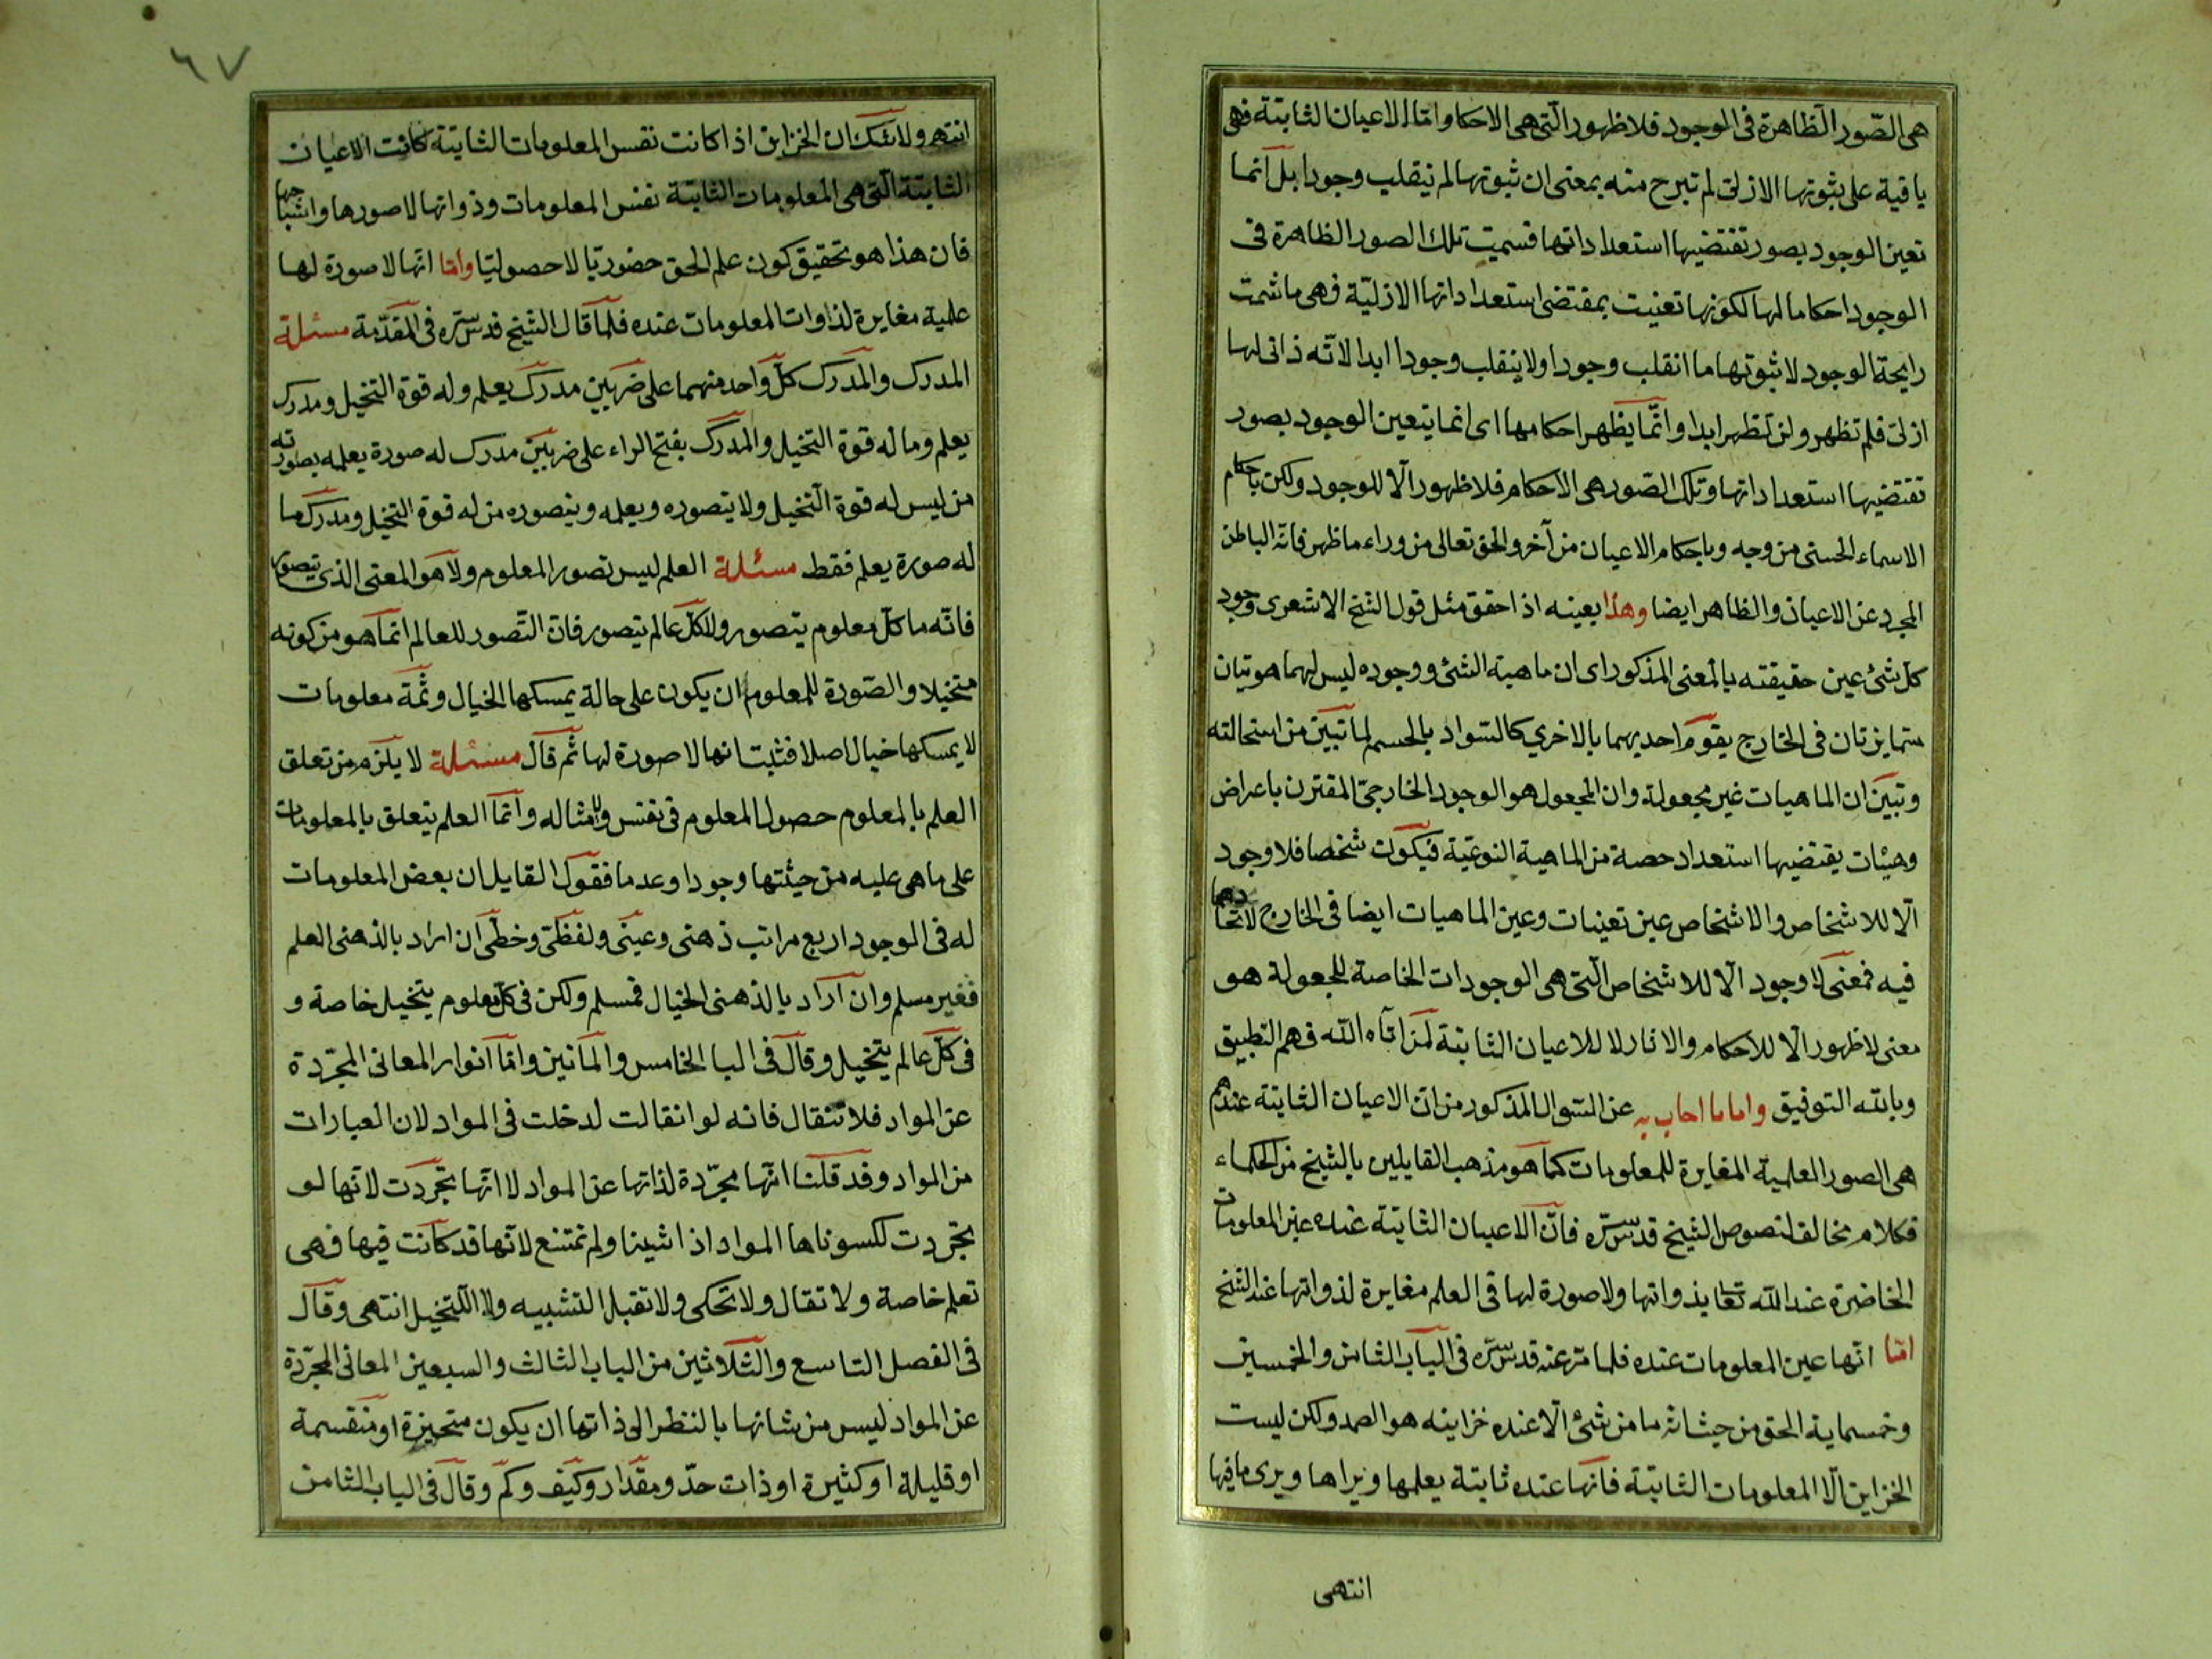 هى الصّور الظاهرة فى الوجود فلا ظهور الّتى هى الاحكا واما الاعيان الثابتة فهى
باقية على ثبوتها الازلى لم تبرح منه بمعنى ان ثبوتها لم ينقلب وجودا بل انما
تعين الوجود بصور تقتضيها استعداداتها فسميت تلك الصور الظاهرة فى
الوجود احكاما لها لكونها تعنيت بمقتضى استعداداتها الازليّة فهى ما شمت
رايحة الوجود لا ثبوتها ما انقلب وجودا ولا ينقلب وجودا ابدا لانّه ذاتى لها
ازلى فلم تظهر ولن تظهر ابدا وانّما يظهر احكامها اى انما يتعين الوجود بصور
تقتضيها استعداداتها وتلك الصّور هى الاحكام فلا ظهور الّا للوجود ولكن باحكام
الاسماء الحسنى من وجه وباحكام الاعيان من آخر والحق تعالى من وراء ما ظهر فانّه الباطن
المجرد عن الاعيان والظاهر ايضا وهذا بعينه اذا حقق مثل قول الشيخ الاشعرى وجود
كل شئ عين حقيقته بالمعنى المذكور اى ان ماهية الشئ ووجوده ليس لهما هويتان
متمايزتان فى الخارج يقوم احديهما بالاخري كالسّواد بالجسم لما تبيّن من استحالته
وتبيّن ان الماهيات غير مجعولة وان المجعول هو الوجود الخارجىّ المقترن باعراض
وهيئات يقتضيها استعداد حصة من الماهية النوعيّة فيكون شخصا فلا وجود
الّا للاشخاص والاشخاص عين تعينات وعين الماهيات ايضا فى الخارج لاتحادهما
فيه فمعنى لا وجود الّا للاشخاص الّتى هى الوجودات الخاصة المجعولة هو
معنى لا ظهور الّا للاحكام والاثار لا للاعيان الثابتة لمن اتاه الله فهم التطبيق
وبالله التوفيق واما ما اجاب به عن السّوال المذكور من انّ الاعيان الثابتة عندهم
هى الصور العلمية المغايرة للمعلومات كما هو مذهب القايلين بالشيخ من الحكماء
فكلام مخالف لنصوص الشيخ قدس سرّه فانّ الاعيان الثابتة عنده عين المعلومات
الحاضرة عند الله تعا بذواتها ولا صورة لها فى العلم مغايرة لذواتها عند الشيخ
امّا انّها عين المعلومات عنده فلما مرّ عنه قدس سرّه فى الباب الثامن والخمسين
وخمسماية الحق من حيث انه ما من شئ الّا عنده خزاينه هو الصمد ولكن ليست
الخزاين الّا المعلومات الثابتة فانّها عنده ثابتة يعلمها ويراها ويرى ما فيها
انتهى
٦٧
انتهى ولا شك ان الخزاين اذا كانت نفس المعلومات الثابتة كانت الاعيان
الثابتة الّتى هى المعلومات الثابتة نفس المعلومات وذواتها لا صورها واشباحها
فان هذا هو تحقيق كون علم الحق حضوريّا لا حصوليّا وامّا انّها لا صورة لها
علمية مغايرة لذوات المعلومات عنده فلما قال الشيخ قدس سرّه فى المقدّمة مسئلة
المدرك والمدرك كلّ واحد منهما على ضربين مدرك يعلم وله قوة التخيل ومدرك
يعلم وما له قوة التخيل والمدرك بفتح الراء على ضربين مدرك له صورة يعلمه بصورته
من ليس له قوة التخيل ولا يتصوره ويعلمه ويتصوره من له قوة التخيل ومدرك ما
له صورة يعلم فقط مسئلة العلم ليس تصور المعلوم ولا هو المعنى الذى يتصور
فانّه ما كلّ معلوم يتصور ولا كلّ عالم يتصور فانّ التّصور للعالم انّما هو من كونه
متخيلا والصّورة للمعلوم ان يكون على حالة يمسكها الخيال وثمّة معلومات
لا يمسكها خيال اصلا فثبت انها لا صورة لها ثم قال مسئلة لا يلزم من تعلق
العلم بالمعلوم حصول المعلوم فى نفس ولا مثاله وانّما العلم يتعلق بالمعلومات
على ما هى عليه من حيثتها وجودا وعدما فقول القايل ان بعض المعلومات
له فى الوجود اربع مراتب ذهنى وعينى ولفظى وخطى ان اراد بالذهنى العلم
فغير مسلم وان اراد بالذهنى الخيال فمسلم ولكن فى كل معلوم يتخيل خاصة و
فى كل عالم يتخيل وقال فى البا الخامس والمأتين وامّا انوار المعانى المجرّدة
عن المواد فلا تنقال فانه لو انقالت لدخلت فى المواد لان العبارات
من المواد وقد قلنا انّها مجرّدة لذاتها عن المواد لا انّها تجرّدت لانّها لو
تجرّدت لكسوناها المواد اذا شينا ولم تمتنع لانّها قد كانت فيها فهى
تعلم خاصة ولا تقال ولا تحكى ولا تقبل التشبيه ولا التخيل انتهى وقال
فى الفصل التاسع والثّلاثين من الباب الثالث والسبعين المعانى المجرّدة
عن المواد ليس من شانها بالنظر الى ذاتها ان يكون متحيزة او منقسمة
او قليلة او كثيرة او ذات حدّ ومقدار وكيف وكم وقال فى الباب الثامن